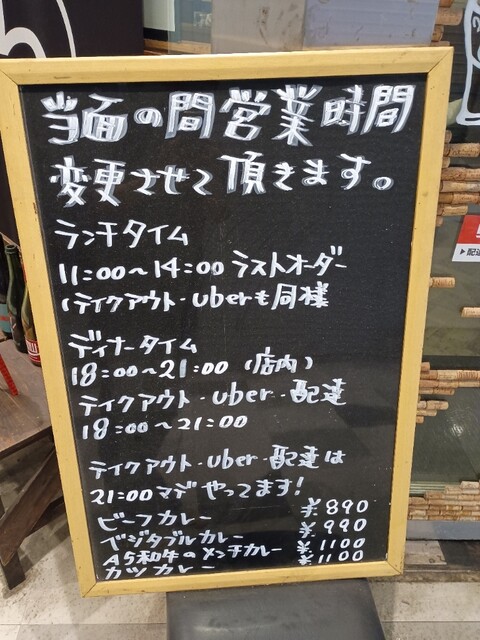 当面の間営業時間
変更させて頂きます。
ランチタイム
11:00〜14:00 ラストオーダー
(テイクアウト・uberも同様
ディナータイム
18:00〜21:00 (店内)
テイクアウト・uber・配達
18:00〜21:00
テイクアウト・uber・配達は
21:00マデやってます!
ビーフカレー ¥890
ベジタブルカレー ¥990
A5和牛のメンチカレー ¥1100
カツカレー ¥1100
▶配達